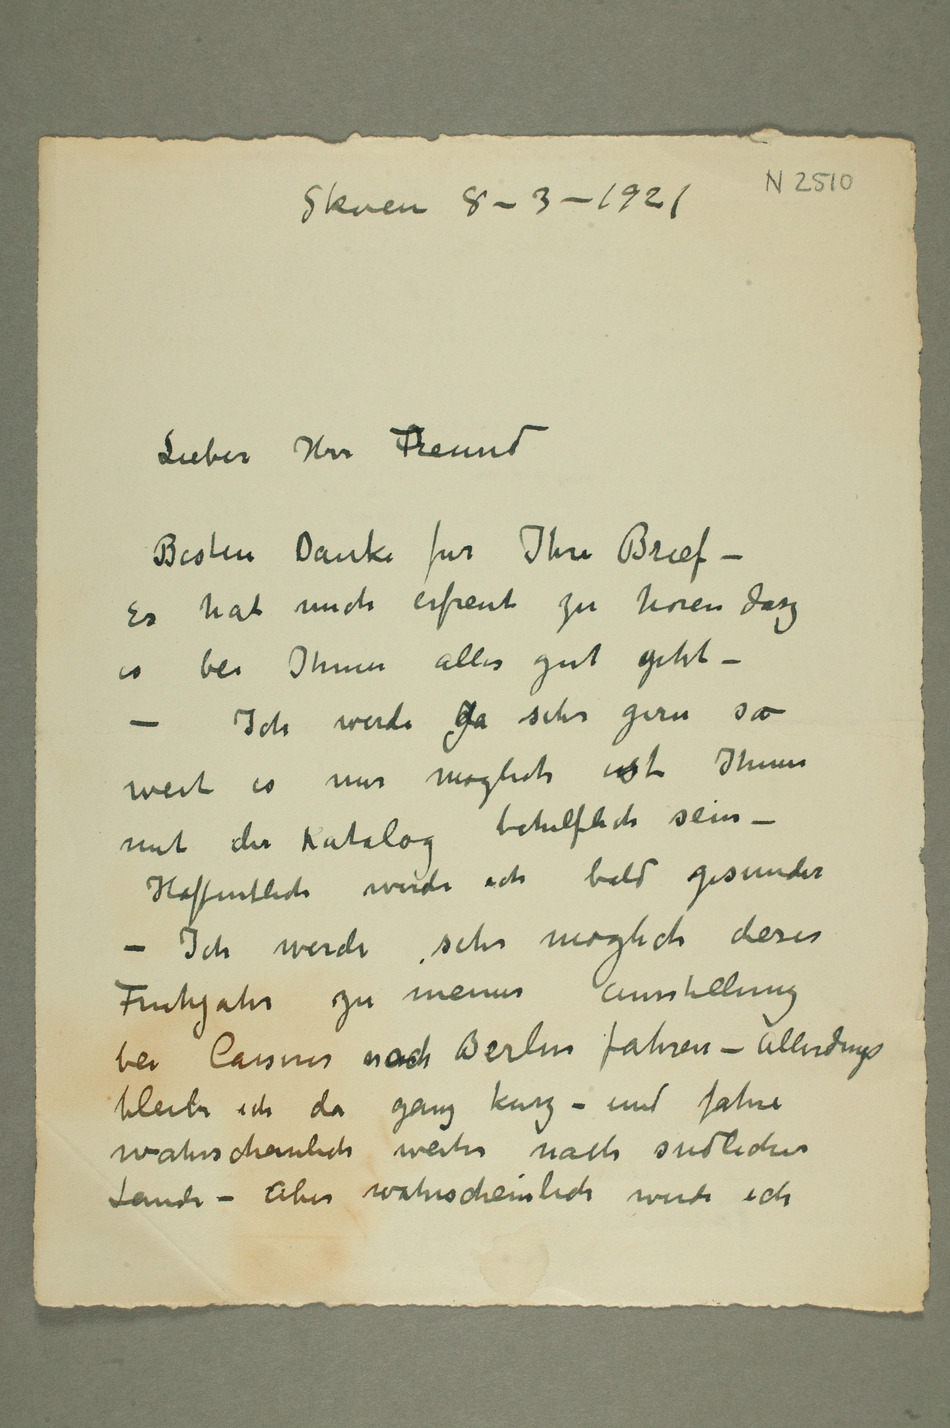 N 2510
Skøien 8–3–1921
Lieber Herr Freund
Besten Danke fur Ihre Brief –
Es hat mich erfreut zu horen dasz
es bei Ihnen alles gut geht –
– Ich werde ja sehr gern so
weit es mir moglich ist Ihnen
mit der Katalog behilflich sein –
Hoffentlich werde ich bald gesunder
– Ich werde sehr moglich deses
Fruhjahr zu meiner Ausstellung
bei Cassirer nach Berlin fahren – Allerdings
bleibe ich da ganz kurz – und fahre
wahrscheinlich weiter nach sudlicher
Lande – Aber wahrscheinlich werde ich